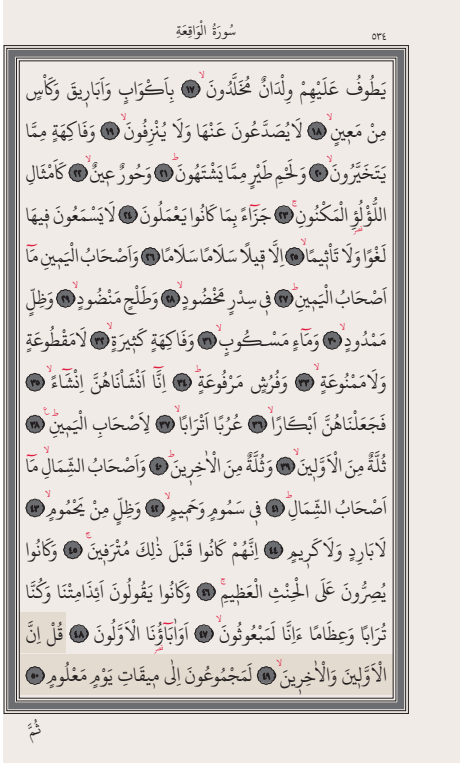 سُورَةُ الْوَاقِعَةِ
٥٣٤
يَطُوفُ عَلَيْهِمْ وِلْدَانٌ مُخَلَّدُونَۙ ﴿١٧﴾ بِاَكْوَابٍ وَاَبَار۪يقَ وَكَأْسٍ
مِنْ مَع۪ينٍۙ ﴿١٨﴾ لَايُصَدَّعُونَ عَنْهَا وَلَا يُنْزِفُونَۙ ﴿١٩﴾ وَفَاكِهَةٍ مِمَّا
يَتَخَيَّرُونَۙ ﴿٢٠﴾ وَلَحْمِ طَيْرٍ مِمَّا يَشْتَهُونَۜ ﴿٢١﴾ وَحُورٌ ع۪ينٌۙ ﴿٢٢﴾ كَاَمْثَالِ
اللُّؤْلُؤِ الْمَكْنُونِۚ ﴿٢٣﴾ جَزَٓاءً بِمَا كَانُوا يَعْمَلُونَ ﴿٢٤﴾ لَايَسْمَعُونَ ف۪يهَا
لَغْوًا وَلَا تَأْث۪يمًاۙ ﴿٢٥﴾ اِلَّا ق۪يلًا سَلَامًا سَلَامًا ﴿٢٦﴾ وَاَصْحَابُ الْيَم۪ينِ مَٓا
اَصْحَابُ الْيَم۪ينِۜ ﴿٢٧﴾ ف۪ي سِدْرٍ مَخْضُودٍۙ ﴿٢٨﴾ وَطَلْحٍ مَنْضُودٍۙ ﴿٢٩﴾ وَظِلٍّ
مَمْدُودٍۙ ﴿٣٠﴾ وَمَٓاءٍ مَسْكُوبٍۙ ﴿٣١﴾ وَفَاكِهَةٍ كَث۪يرَةٍۙ ﴿٣٢﴾ لَامَقْطُوعَةٍ
وَلَامَمْنُوعَةٍۙ ﴿٣٣﴾ وَفُرُشٍ مَرْفُوعَةٍۜ ﴿٣٤﴾ اِنَّٓا اَنْشَأْنَاهُنَّ اِنْشَٓاءًۙ ﴿٣٥﴾
فَجَعَلْنَاهُنَّ اَبْكَارًاۙ ﴿٣٦﴾ عُرُبًا اَتْرَابًاۙ ﴿٣٧﴾ لِاَصْحَابِ الْيَم۪ينِۜ ۟ ﴿٣٨﴾
ثُلَّةٌ مِنَ الْاَوَّل۪ينَۙ ﴿٣٩﴾ وَثُلَّةٌ مِنَ الْاٰخِر۪ينَۜ ﴿٤٠﴾ وَاَصْحَابُ الشِّمَالِ مَٓا
اَصْحَابُ الشِّمَالِۜ ﴿٤١﴾ ف۪ي سَمُومٍ وَحَم۪يمٍۙ ﴿٤٢﴾ وَظِلٍّ مِنْ يَحْمُومٍۙ ﴿٤٣﴾
لَابَارِدٍ وَلَاكَر۪يمٍ ﴿٤٤﴾ اِنَّهُمْ كَانُوا قَبْلَ ذٰلِكَ مُتْرَف۪ينَۚ ﴿٤٥﴾ وَكَانُوا
يُصِرُّونَ عَلَى الْحِنْثِ الْعَظ۪يمِۚ ﴿٤٦﴾ وَكَانُوا يَقُولُونَ اَئِذَامِتْنَا وَكُنَّا
تُرَابًا وَعِظَامًا ءَاِنَّا لَمَبْعُوثُونَۙ ﴿٤٧﴾ اَوَاٰبَٓاؤُ۬نَا الْاَوَّلُونَ ﴿٤٨﴾ قُلْ اِنَّ
الْاَوَّل۪ينَ وَالْاٰخِر۪ينَۙ ﴿٤٩﴾ لَمَجْمُوعُونَ اِلٰى م۪يقَاتِ يَوْمٍ مَعْلُومٍ ﴿٥٠﴾
ثُمَّ